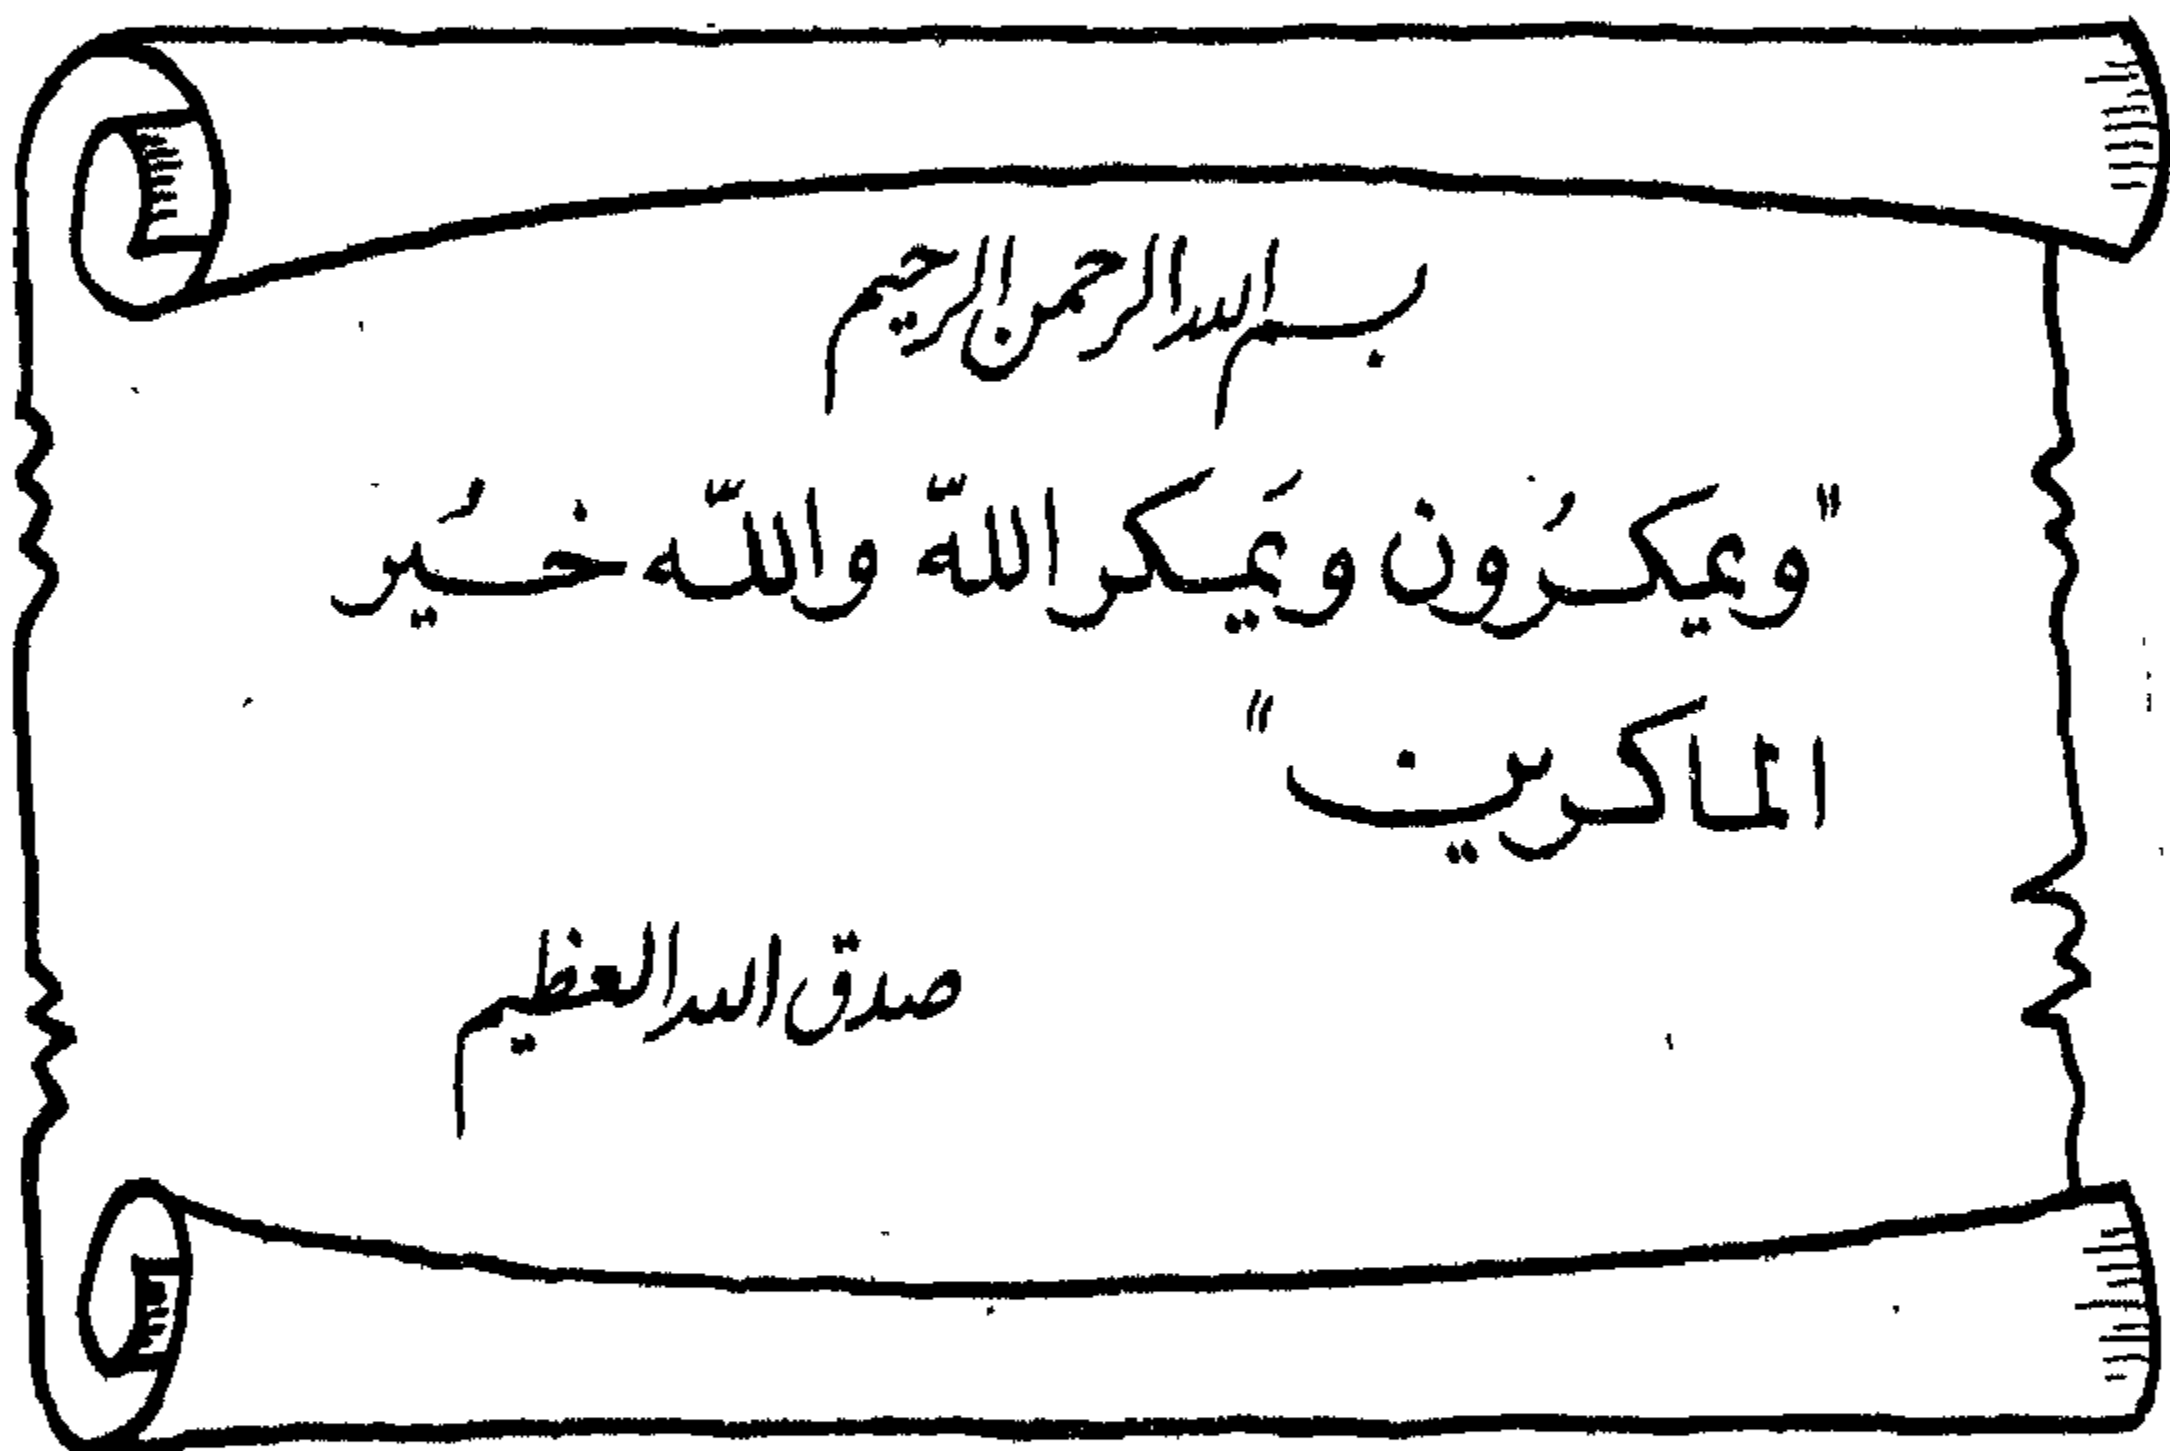 بسم الله الرحمن الرحيم
"ويمكرُون ويَمكر اللّه واللّه خَير
الماكرين"
صدق الله العظيم